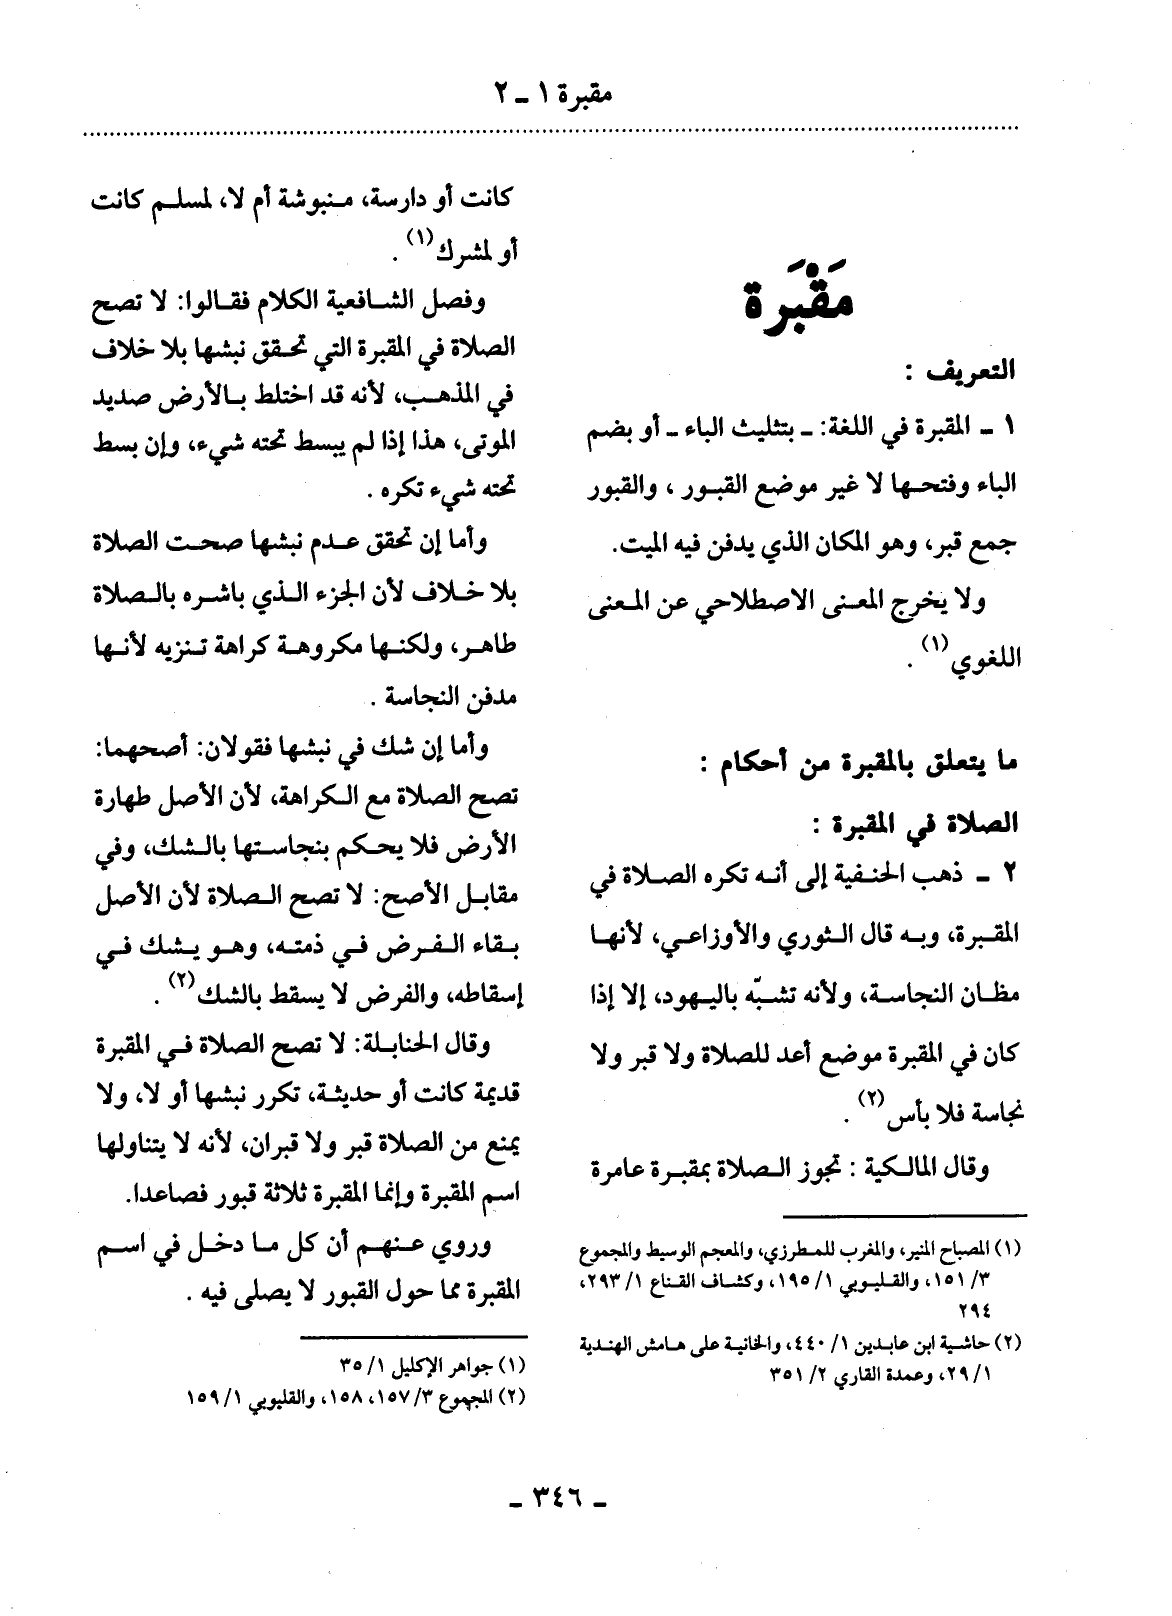 مقبرة ١ ـ ٢
مَقْبَرة
التعريف :
١ ـ المقبرة في اللغة: ـ بتثليث الباء ـ أو بضم
الباء وفتحها لا غير موضع القبور ، والقبور
جمع قبر، وهو المكان الذي يدفن فيه الميت.
ولا يخرج المعنى الاصطلاحي عن المعنى
اللغوي(١) .
ما يتعلق بالمقبرة من أحكام :
الصلاة في المقبرة :
٢ ـ ذهب الحنفية إلى أنه تكره الصلاة في
المقبرة، وبه قال الثوري والأوزاعي، لأنها
مظان النجاسة، ولأنه تشبّه باليهود، إلا إذا
كان في المقبرة موضع أعد للصلاة ولا قبر ولا
نجاسة فلا بأس(٢) .
وقال المالكية : تجوز الصلاة بمقبرة عامرة
(١) المصباح المنير، والمغرب للمطرزي، والمعجم الوسيط والمجموع
٣/ ١٥١، والقليوبي ١/ ١٩٥، وكشاف القناع ١/ ٢٩٣،
٢٩٤
(٢) حاشية ابن عابدين ١/ ٤٤٠، والخانية على هامش الهندية
١/ ٢٩، وعمدة القاري ٢/ ٣٥١
كانت أو دارسة، منبوشة أم لا، لمسلم كانت
أو لمشرك(١) .
وفصل الشافعية الكلام فقالوا: لا تصح
الصلاة في المقبرة التي تحقق نبشها بلا خلاف
في المذهب، لأنه قد اختلط بالأرض صديد
الموتى، هذا إذا لم يبسط تحته شيء، وإن بسط
تحته شيء تكره .
وأما إن تحقق عدم نبشها صحت الصلاة
بلا خلاف لأن الجزء الذي باشره بالصلاة
طاهر، ولكنها مكروهة كراهة تنزيه لأنها
مدفن النجاسة .
وأما إن شك في نبشها فقولان: أصحهما:
تصح الصلاة مع الكراهة، لأن الأصل طهارة
الأرض فلا يحكم بنجاستها بالشك، وفي
مقابل الأصح: لا تصح الصلاة لأن الأصل
بقاء الفرض في ذمته، وهو يشك في
إسقاطه، والفرض لا يسقط بالشك(٢) .
وقال الحنابلة: لا تصح الصلاة في المقبرة
قديمة كانت أو حديثة، تكرر نبشها أو لا، ولا
يمنع من الصلاة قبر ولا قبران، لأنه لا يتناولها
اسم المقبرة وإنما المقبرة ثلاثة قبور فصاعدا.
وروي عنهم أن كل ما دخل في اسم
المقبرة مما حول القبور لا يصلى فيه .
(١) جواهر الإكليل ١/ ٣٥
(٢) المجموع ٣/ ١٥٧، ١٥٨، والقليوبي ١/ ١٥٩
ـ ٣٤٦ ـ